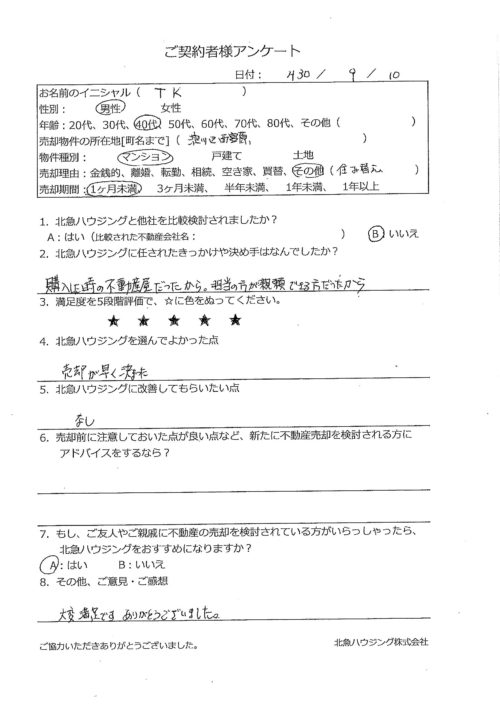 ご契約者様アンケート
日付： H30 / 9 / 10
お名前のイニシャル（ T K ）
性別： 男性 女性
年齢：20代、30代、40代、50代、60代、70代、80代、その他（ ）
売却物件の所在地[町名まで]（ ）
物件種別： マンション 戸建て 土地
売却理由：金銭的、離婚、転勤、相続、空き家、買替、その他（住み替え ）
売却期間：1ヶ月未満、 3ヶ月未満、 半年未満、 1年未満、 1年以上
1．北急ハウジングと他社を比較検討されましたか？
A：はい（比較された不動産会社名： ） B：いいえ
2．北急ハウジングに任されたきっかけや決め手はなんでしたか？
購入時の不動産屋だったから。担当の方が親頼できる方だったから
3．満足度を5段階評価で、☆に色をぬってください。
★ ★ ★ ★ ★
4．北急ハウジングを選んでよかった点
売却が早く決まった
5．北急ハウジングに改善してもらいたい点
なし
6．売却前に注意しておいた点が良い点など、新たに不動産売却を検討される方に
アドバイスをするなら？
7．もし、ご友人やご親戚に不動産の売却を検討されている方がいらっしゃったら、
北急ハウジングをおすすめになりますか？
A：はい B：いいえ
8．その他、ご意見・ご感想
大変満足です ありがとうございました。
ご協力いただきありがとうございました。
北急ハウジング株式会社